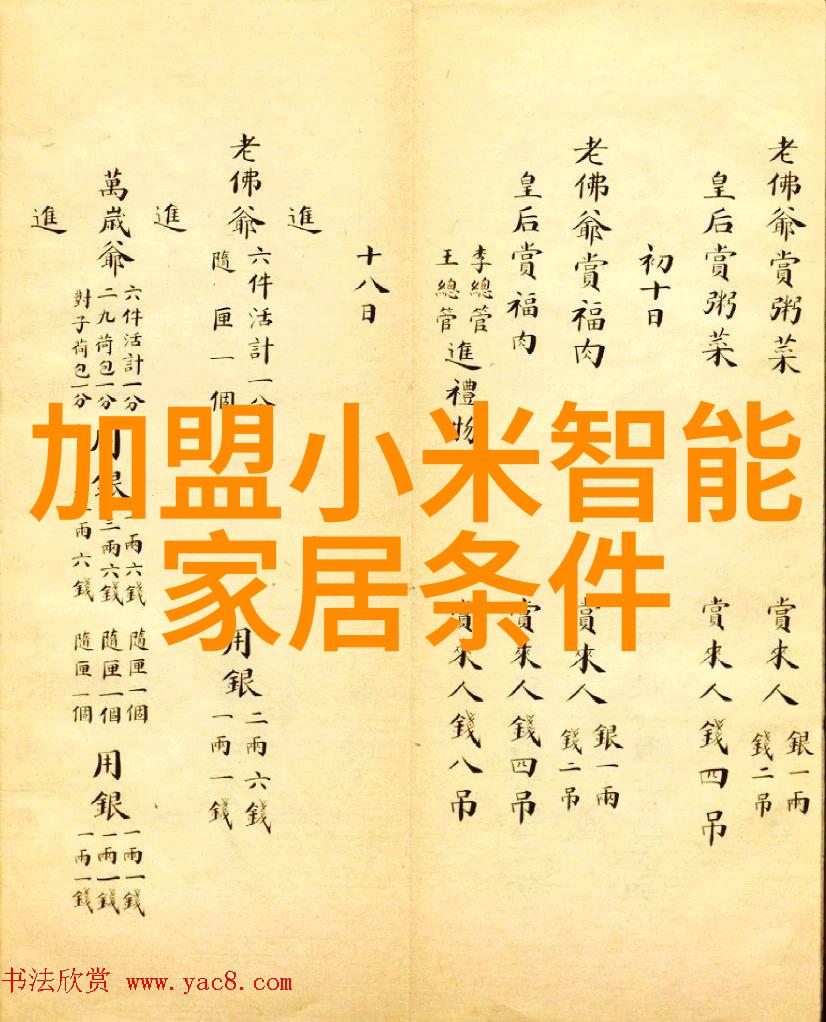 老佛爺賞粥菜 賞來人 銀一兩 錢二吊
皇后賞粥菜 賞來人錢四吊
初十日
老佛爺賞福肉 賞來人 銀一兩 錢二吊
皇后賞福肉 賞來人錢四吊
李總管 王總管 進禮物 賞來人錢八吊
十八日
進
老佛爺 六件活計一 隨匣一個 用銀 二兩六錢 一兩一錢
進
萬歲爺 六件活計一分 二九荷包一分 對子荷包一分 用銀 一兩六錢 二兩六錢 一兩六錢 隨匣一個 隨匣一個 隨匣一個 用銀 一兩一錢 一兩一錢 一兩一錢
進
加盟小米智能
家居条件
书法欣赏 www.yac8.com